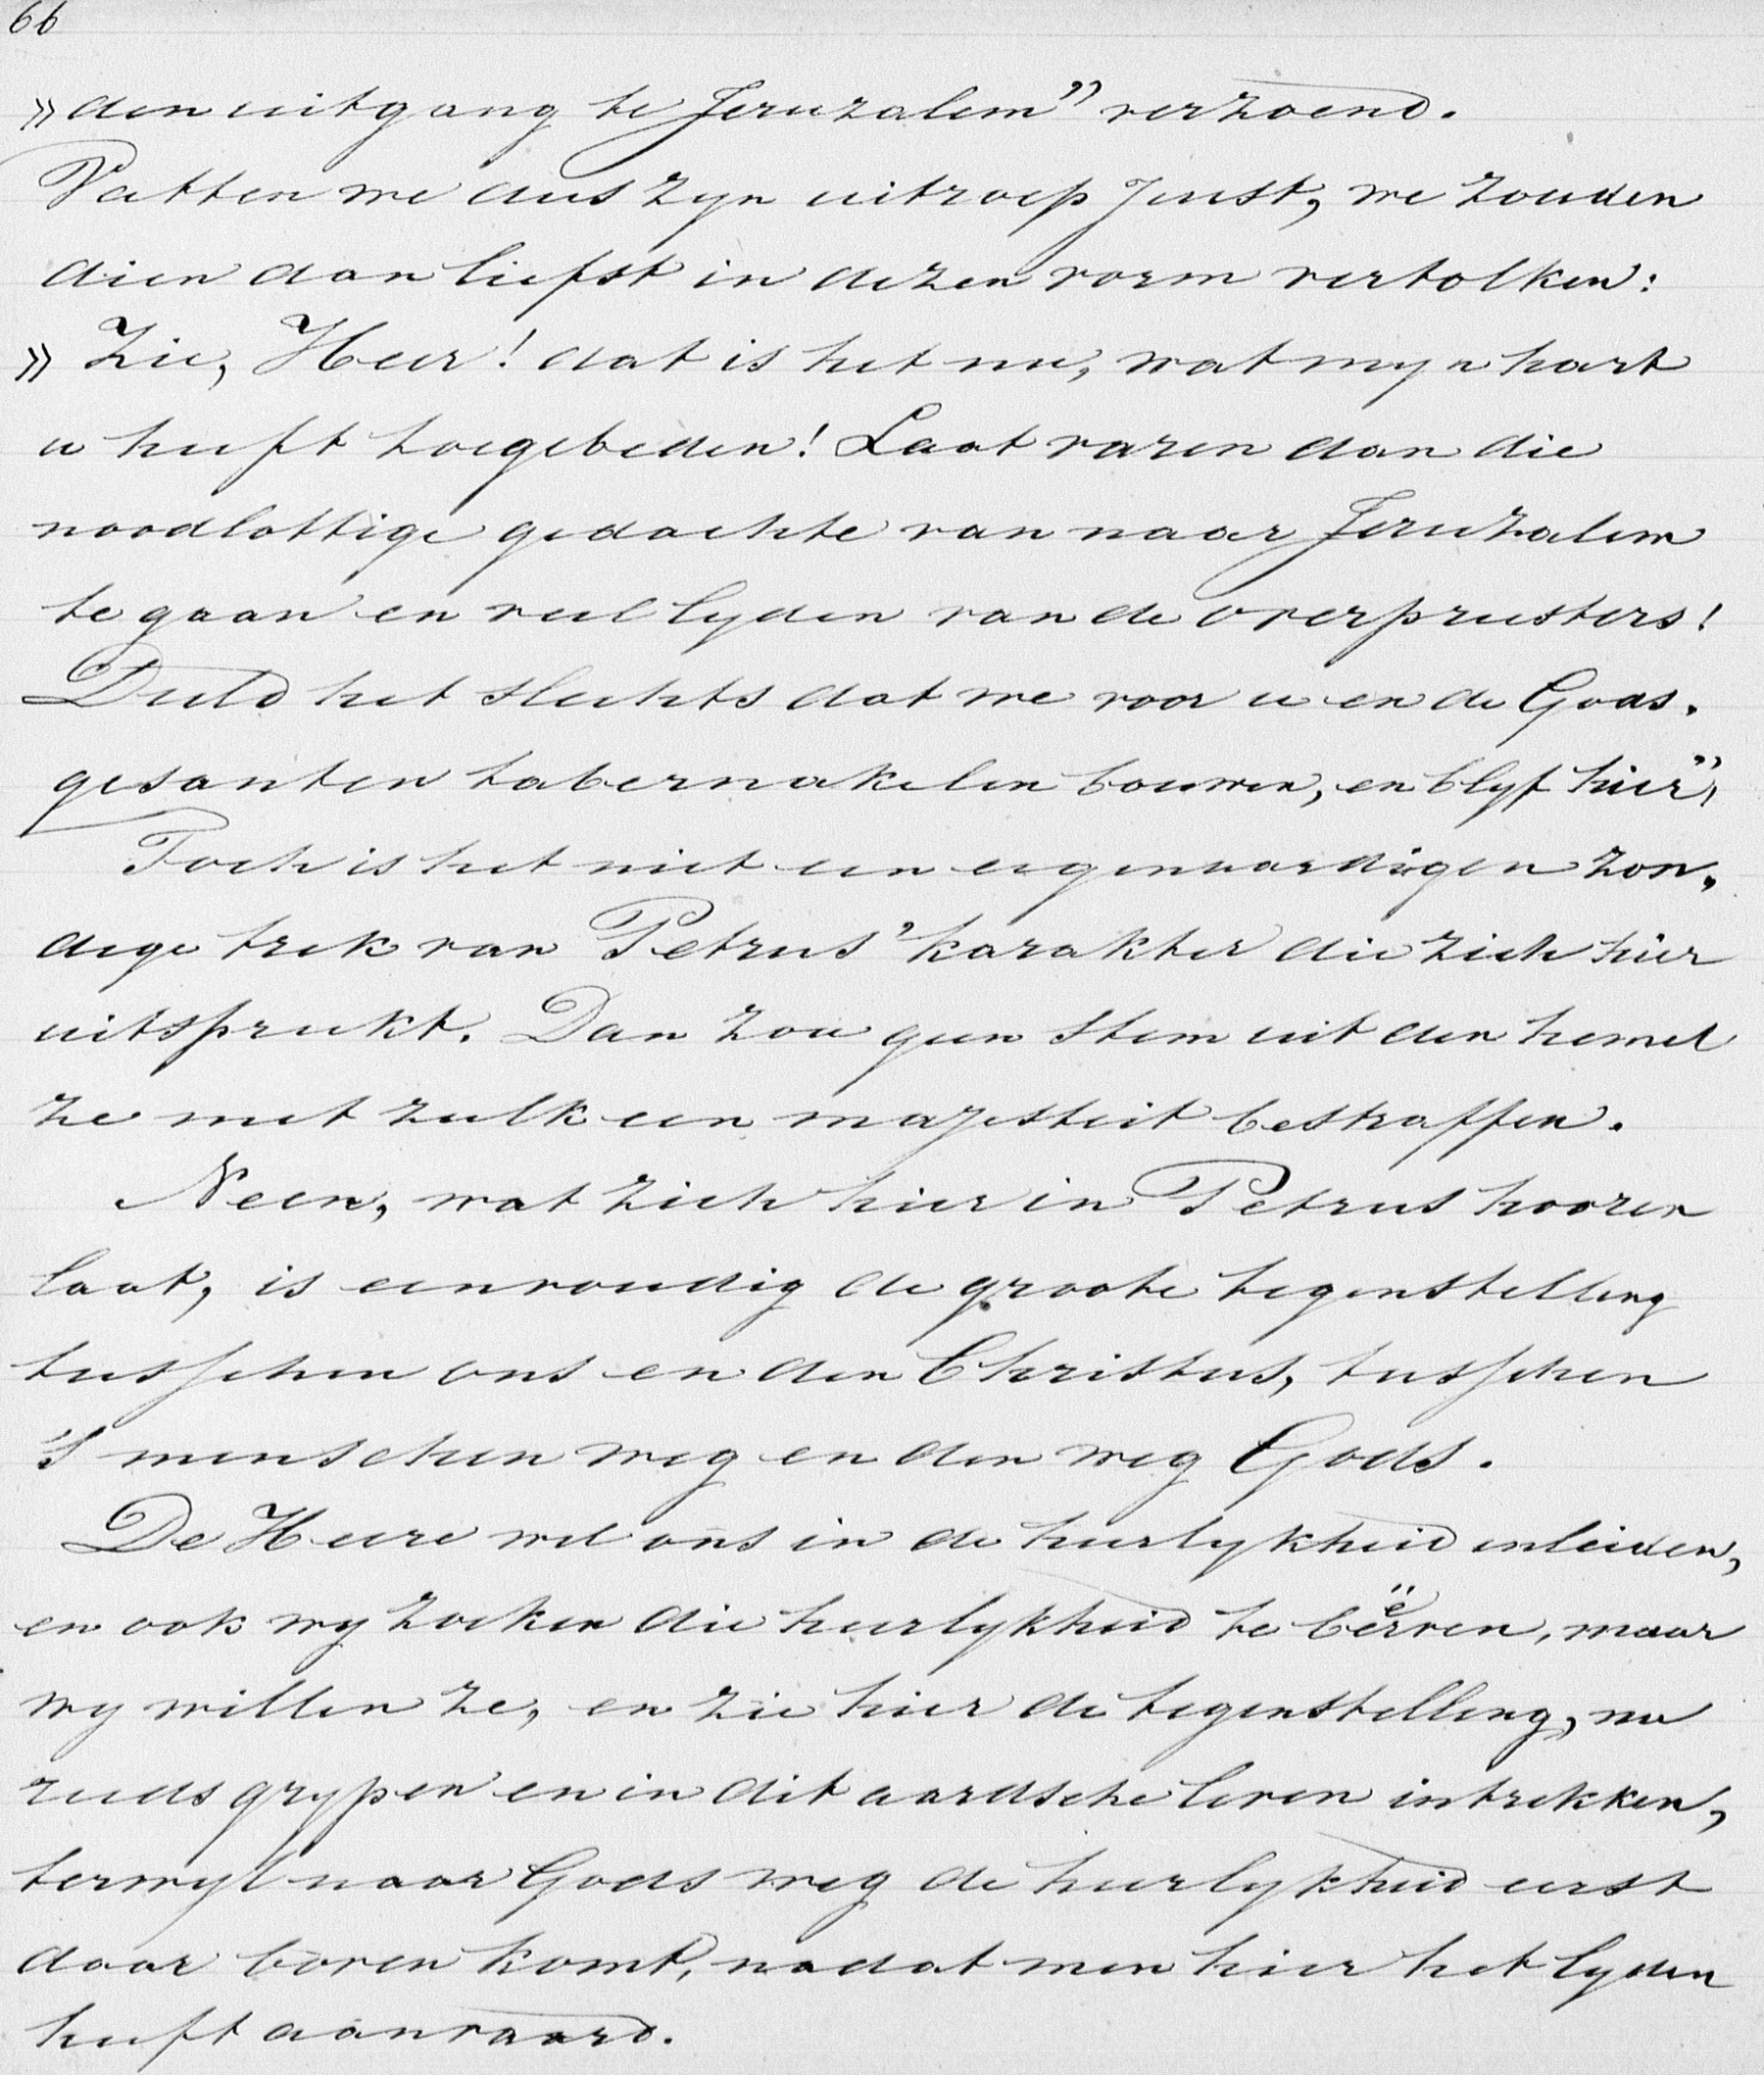 66
»den uitgang te Jeruzalem” verzoend.
Vatten we dus zyn uitroep juist, we zouden
dien dan liefst in dezen vorm vertolken:
» Zie, Heer! dat is het nu, wat myn hart
u heeft toegebeden! Laat varen dan die
noodlottige gedachte van naar Jeruzalem
te gaan en veel lyden van de overpriesters!
Duld het slechts dat we voor u en de Gods.
gesanten tabernakelen bouwen, en blyf hier”,
Toch is het niet een eigenaardigen zon,
dige trek van Petrus’ karakter die zich hier
uitspreekt. Dan zou geen stem uit den hemel
ze met zulk een majesteit bestraffen.
Neen, wat zich hier in Petrus hooren
laat, is eenvoudig de groote tegenstelling
tusschen ons en den Christus, tusschen
's menschen weg en den weg Gods.
De Heere wil ons in de heerlykheid inleiden,
en ook wy zoeken die heerlykheid te beërven, maar
wy willen ze, en zie hier de tegenstelling, nu
reeds grypen en in dit aardsche leven intrekken,
terwyl naar Gods weg de heerlykheid eerst
daar boven komt, nadat men hier het lyden
heeft aanvaard.